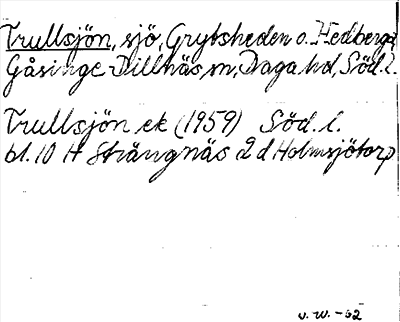 Trullsjön, sjö, Grytsheden o. Hedberga
Gåsinge-Dillnäs sn, Daga hd, Söd. l.
Trullsjön ek (1959) Söd. l.
bl. 10 H Strängnäs 2 d Holmsjötorp
v. w. -62